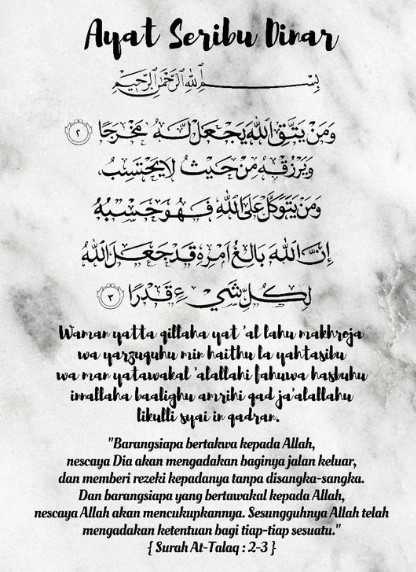 Ayat Seribu Dinar
بِسْمِ اللَّهِ الرَّحْمَٰنِ الرَّحِيمِ
وَمَنْ يَتَّقِ اللَّهَ يَجْعَلْ لَهُ مَخْرَجًا ٢
وَيَرْزُقْهُ مِنْ حَيْثُ لَا يَحْتَسِبُ
وَمَنْ يَتَوَكَّلْ عَلَى اللَّهِ فَهُوَ حَسْبُهُ
إِنَّ اللَّهَ بَالِغُ أَمْرِهِ قَدْ جَعَلَ اللَّهُ
لِكُلِّ شَيْءٍ قَدْرًا ٣
Waman yatta qillaha yat 'al lahu makhroja
wa yarzuquhu min haithu la yahtasibu
wa man yatawakal 'alallahi fahuwa hasbuhu
innallaha baalighu amrihi qad ja'alallahu
likulli syai in qadran.
"Barangsiapa bertakwa kepada Allah,
nescaya Dia akan mengadakan baginya jalan keluar,
dan memberi rezeki kepadanya tanpa disangka-sangka.
Dan barangsiapa yang bertawakal kepada Allah,
nescaya Allah akan mencukupkannya. Sesungguhnya Allah telah
mengadakan ketentuan bagi tiap-tiap sesuatu."
{ Surah At-Talaq : 2-3 }